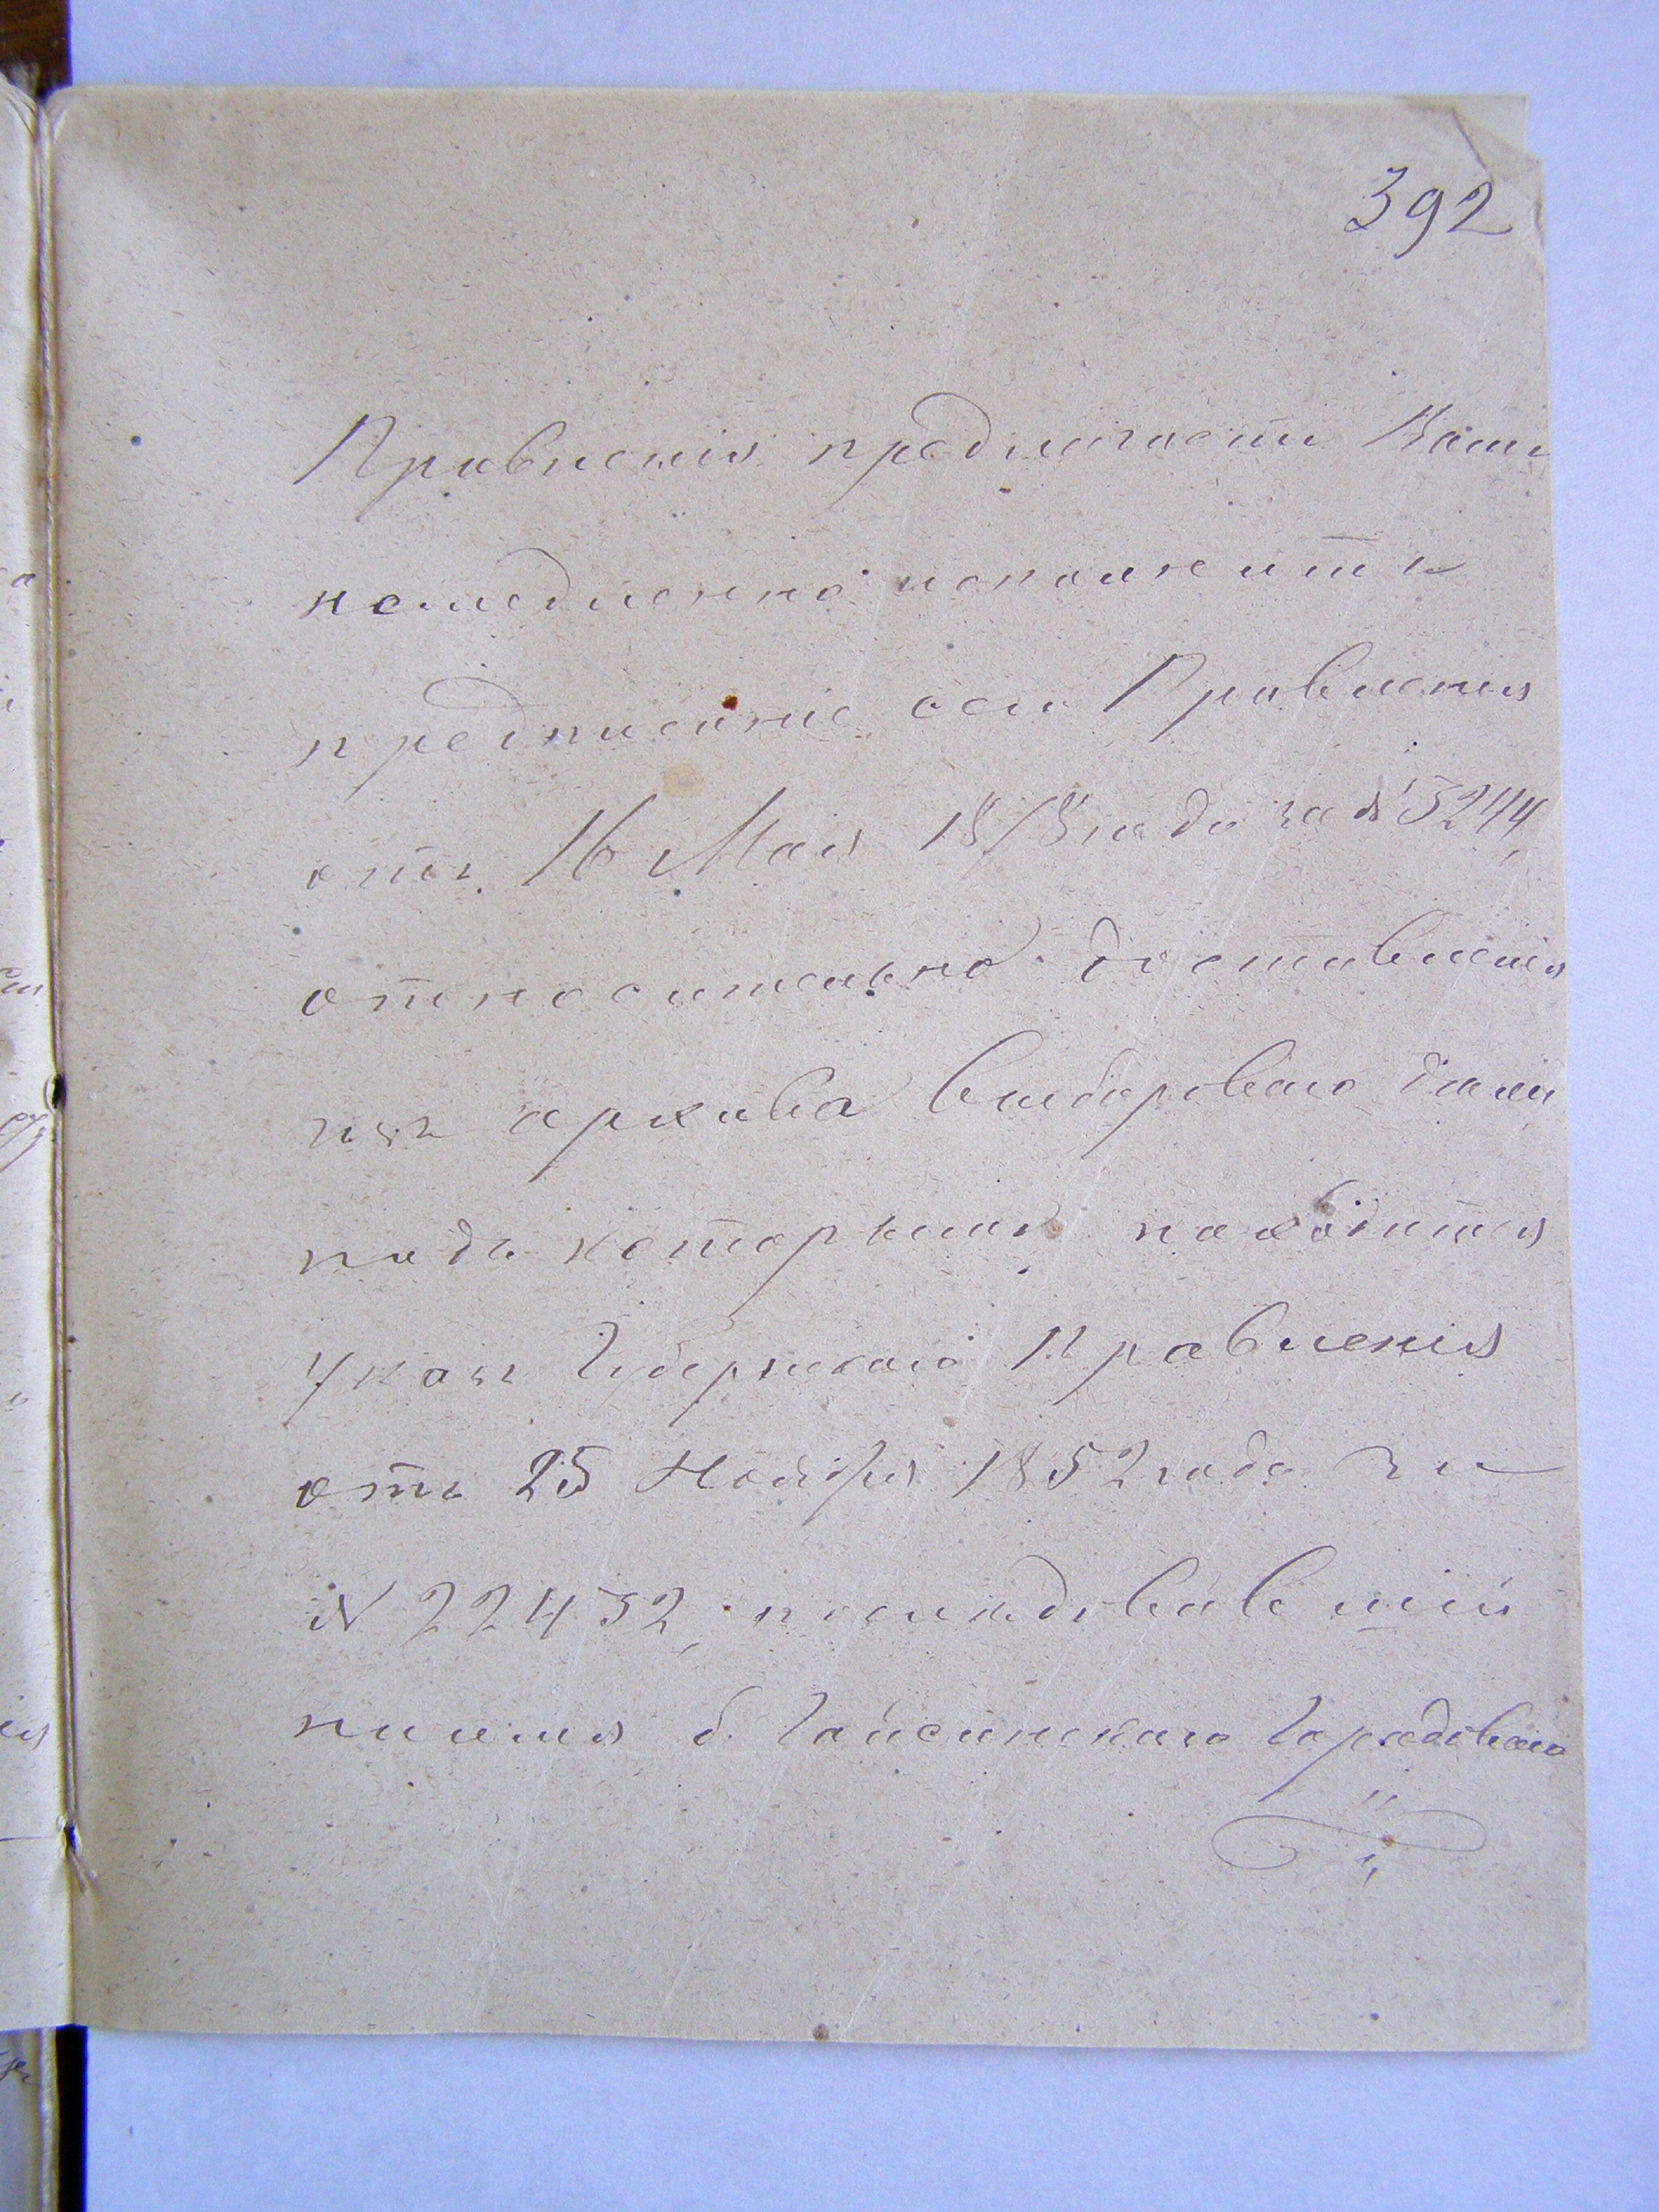 392
Правленія предлагаетъ Вамъ
немедленно исполнить
предписаніе сего Правленія
отъ 16 Мая 1878 года за № 5244,
относительно доставленія
изъ архива выборового дѣла,
подъ которымъ находится
Указъ Губернскаго Правленія
отъ 25 Ноября 1852 года за
№ 22432, послѣдовавшій
на имя б. Гайсинскаго Городоваго